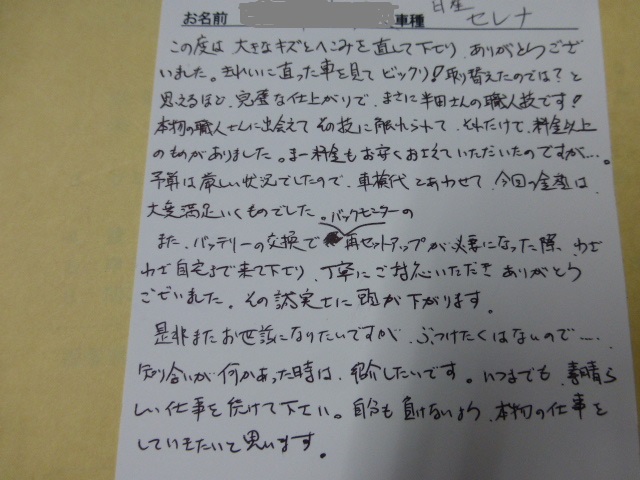 お名前 車種 日産 セレナ
この度は大きなキズとへこみを直して下さり、ありがとうござ
いました。きれいに直った車を見てビックリ！取替えたのでは？と
思えるほど、完璧な仕上がりで、まさに半田さんの職人技です！
本物の職人さんに出会えてその技に触れられて、それだけで、料金以上
のものがありました。まー料金もお安くおさえていただいたのですが…。
予算は厳しい状況でしたので、車検代とあわせて、今回の金額は、
大変満足いくものでした。バックモニターの
また、バッテリーの交換で再セットアップが必要になった際、わざ
わざ自宅まで来て下さり、丁寧にご対応いただきありがとう
ございました。その誠実さに頭が下がります。
是非またお世話になりたいですが、ぶつけたくはないので…、
知り合いが何かあった時は、紹介したいです。いつまでも、素晴ら
しい仕事を続けて下さい。自分も負けないよう、本物の仕事を
していきたいと思います。